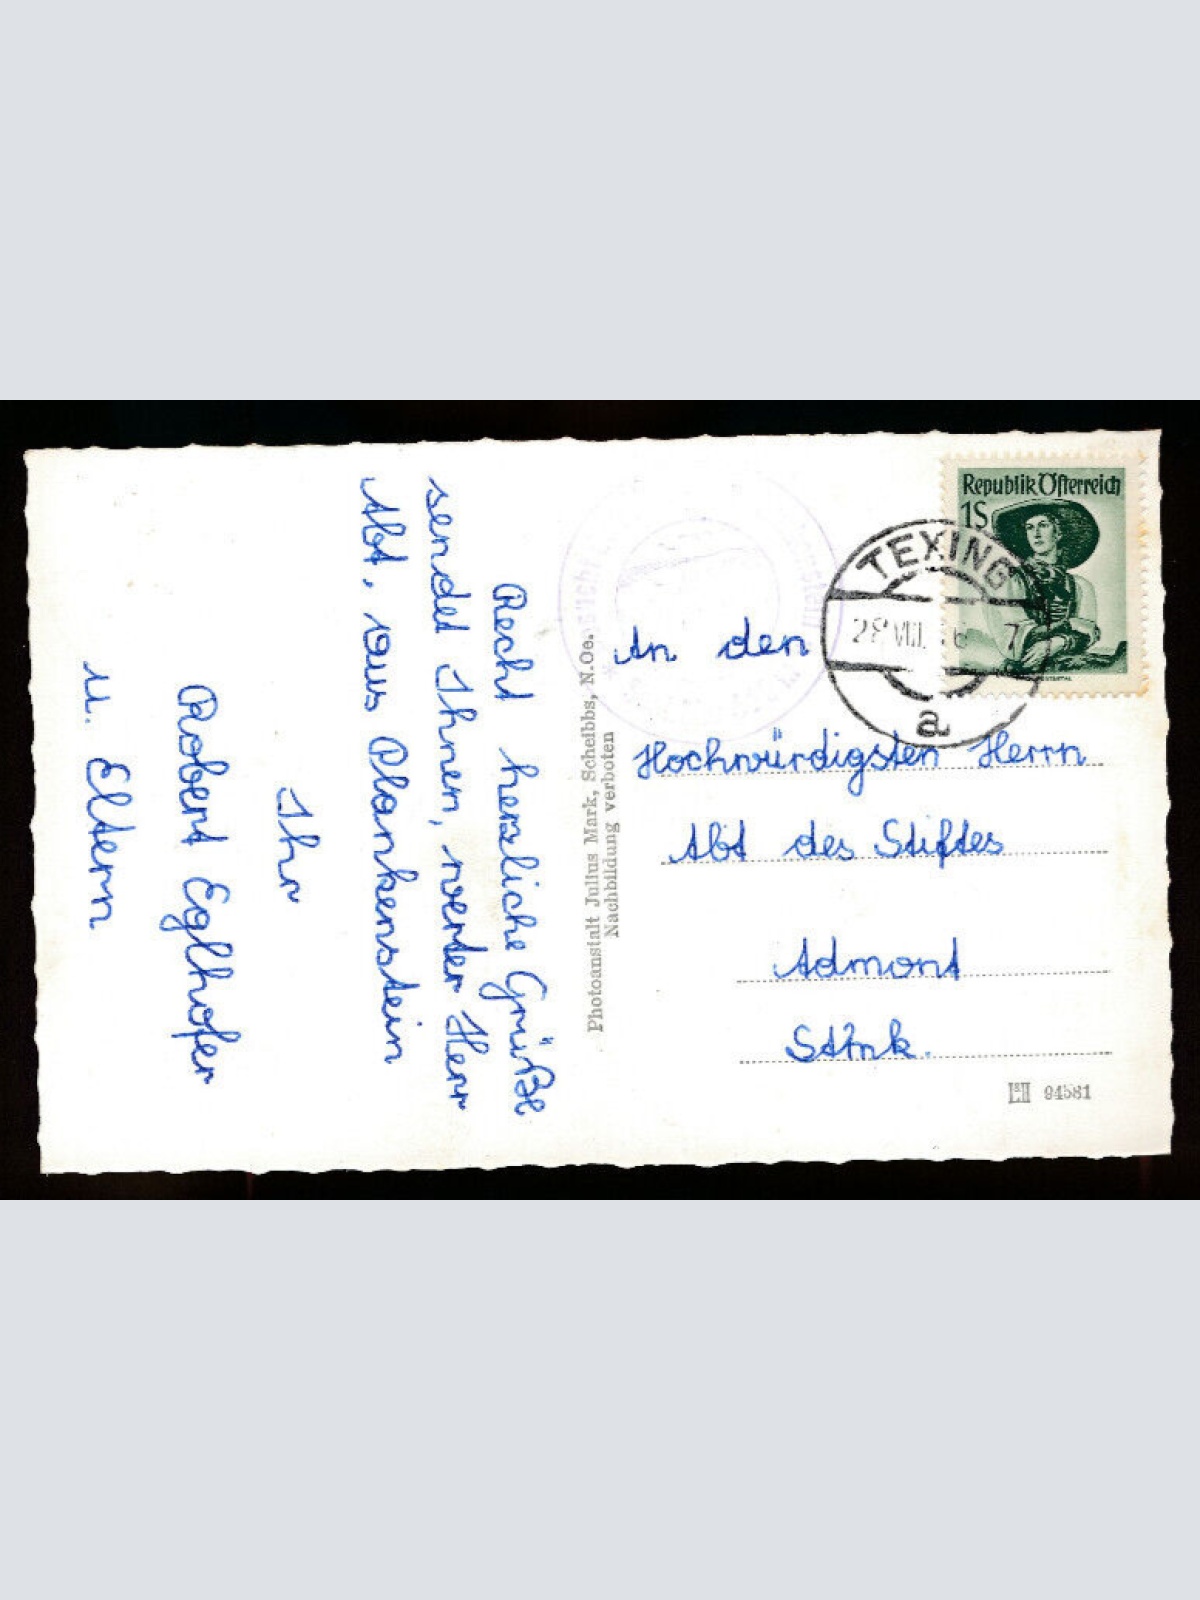 Recht herzliche Grüße
sendet Ihnen, werter Herr
Abt, aus Plankenstein
Ihr
Robert Eglhofer
u. Eltern
Photoanstalt Julius Mark, Scheibbs, N.Oe.
Nachbildung verboten
Republik Österreich
1S
TEXING
28 VIII 7
a
An den
Hochwürdigsten Herrn
Abt des Stiftes
Admont
Stmk.
94581